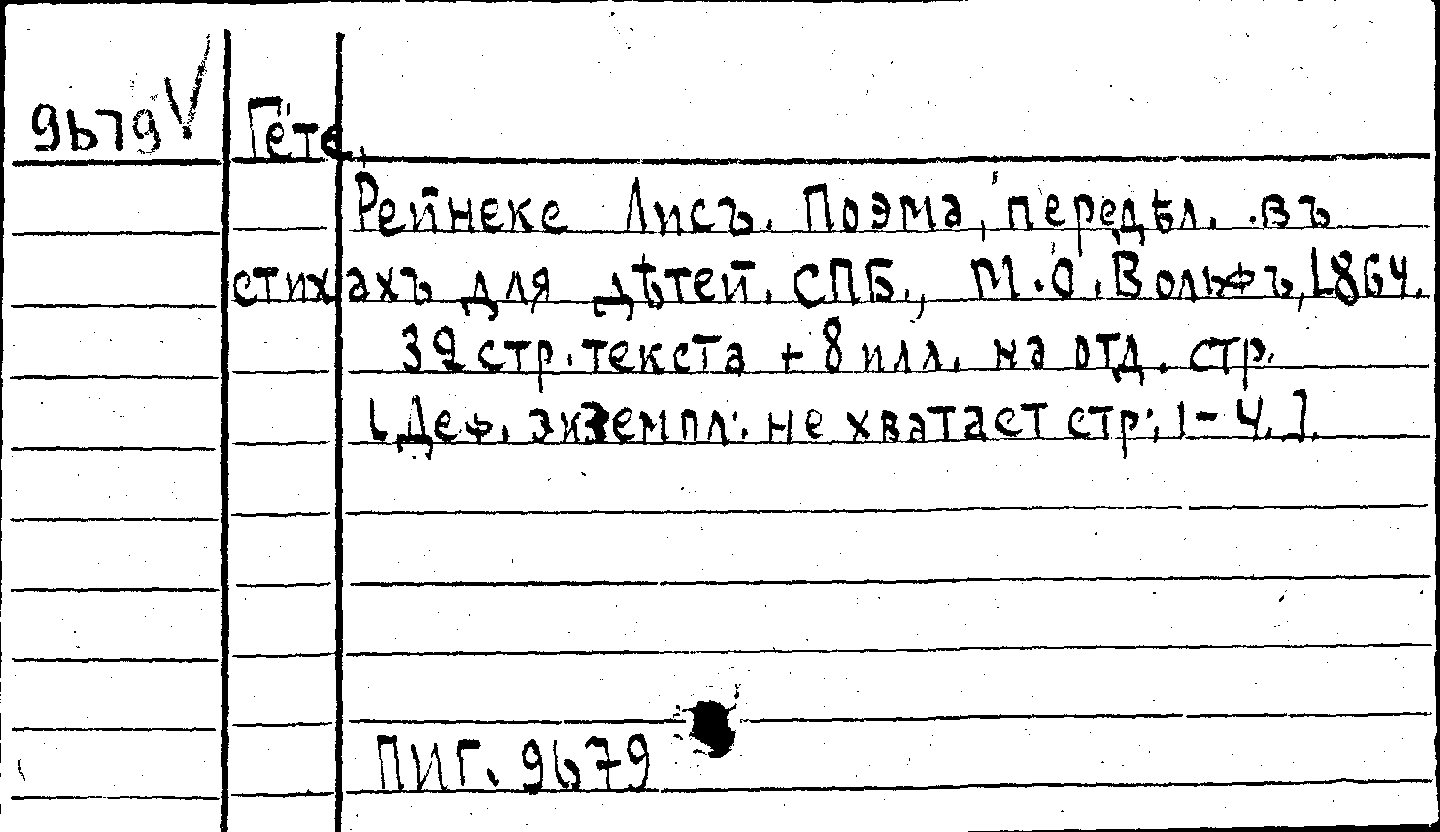 9679 V Гёте.
Рейнеке Лисъ. Поэма, передѣл. въ
стихахъ для дѣтей. СПБ., М.О.Вольфъ, 1864.
32 стр. текста + 8 илл. на отд. стр.
[Деф. экземпл. не хватает стр. 1-4.].
ПИГ. 9679